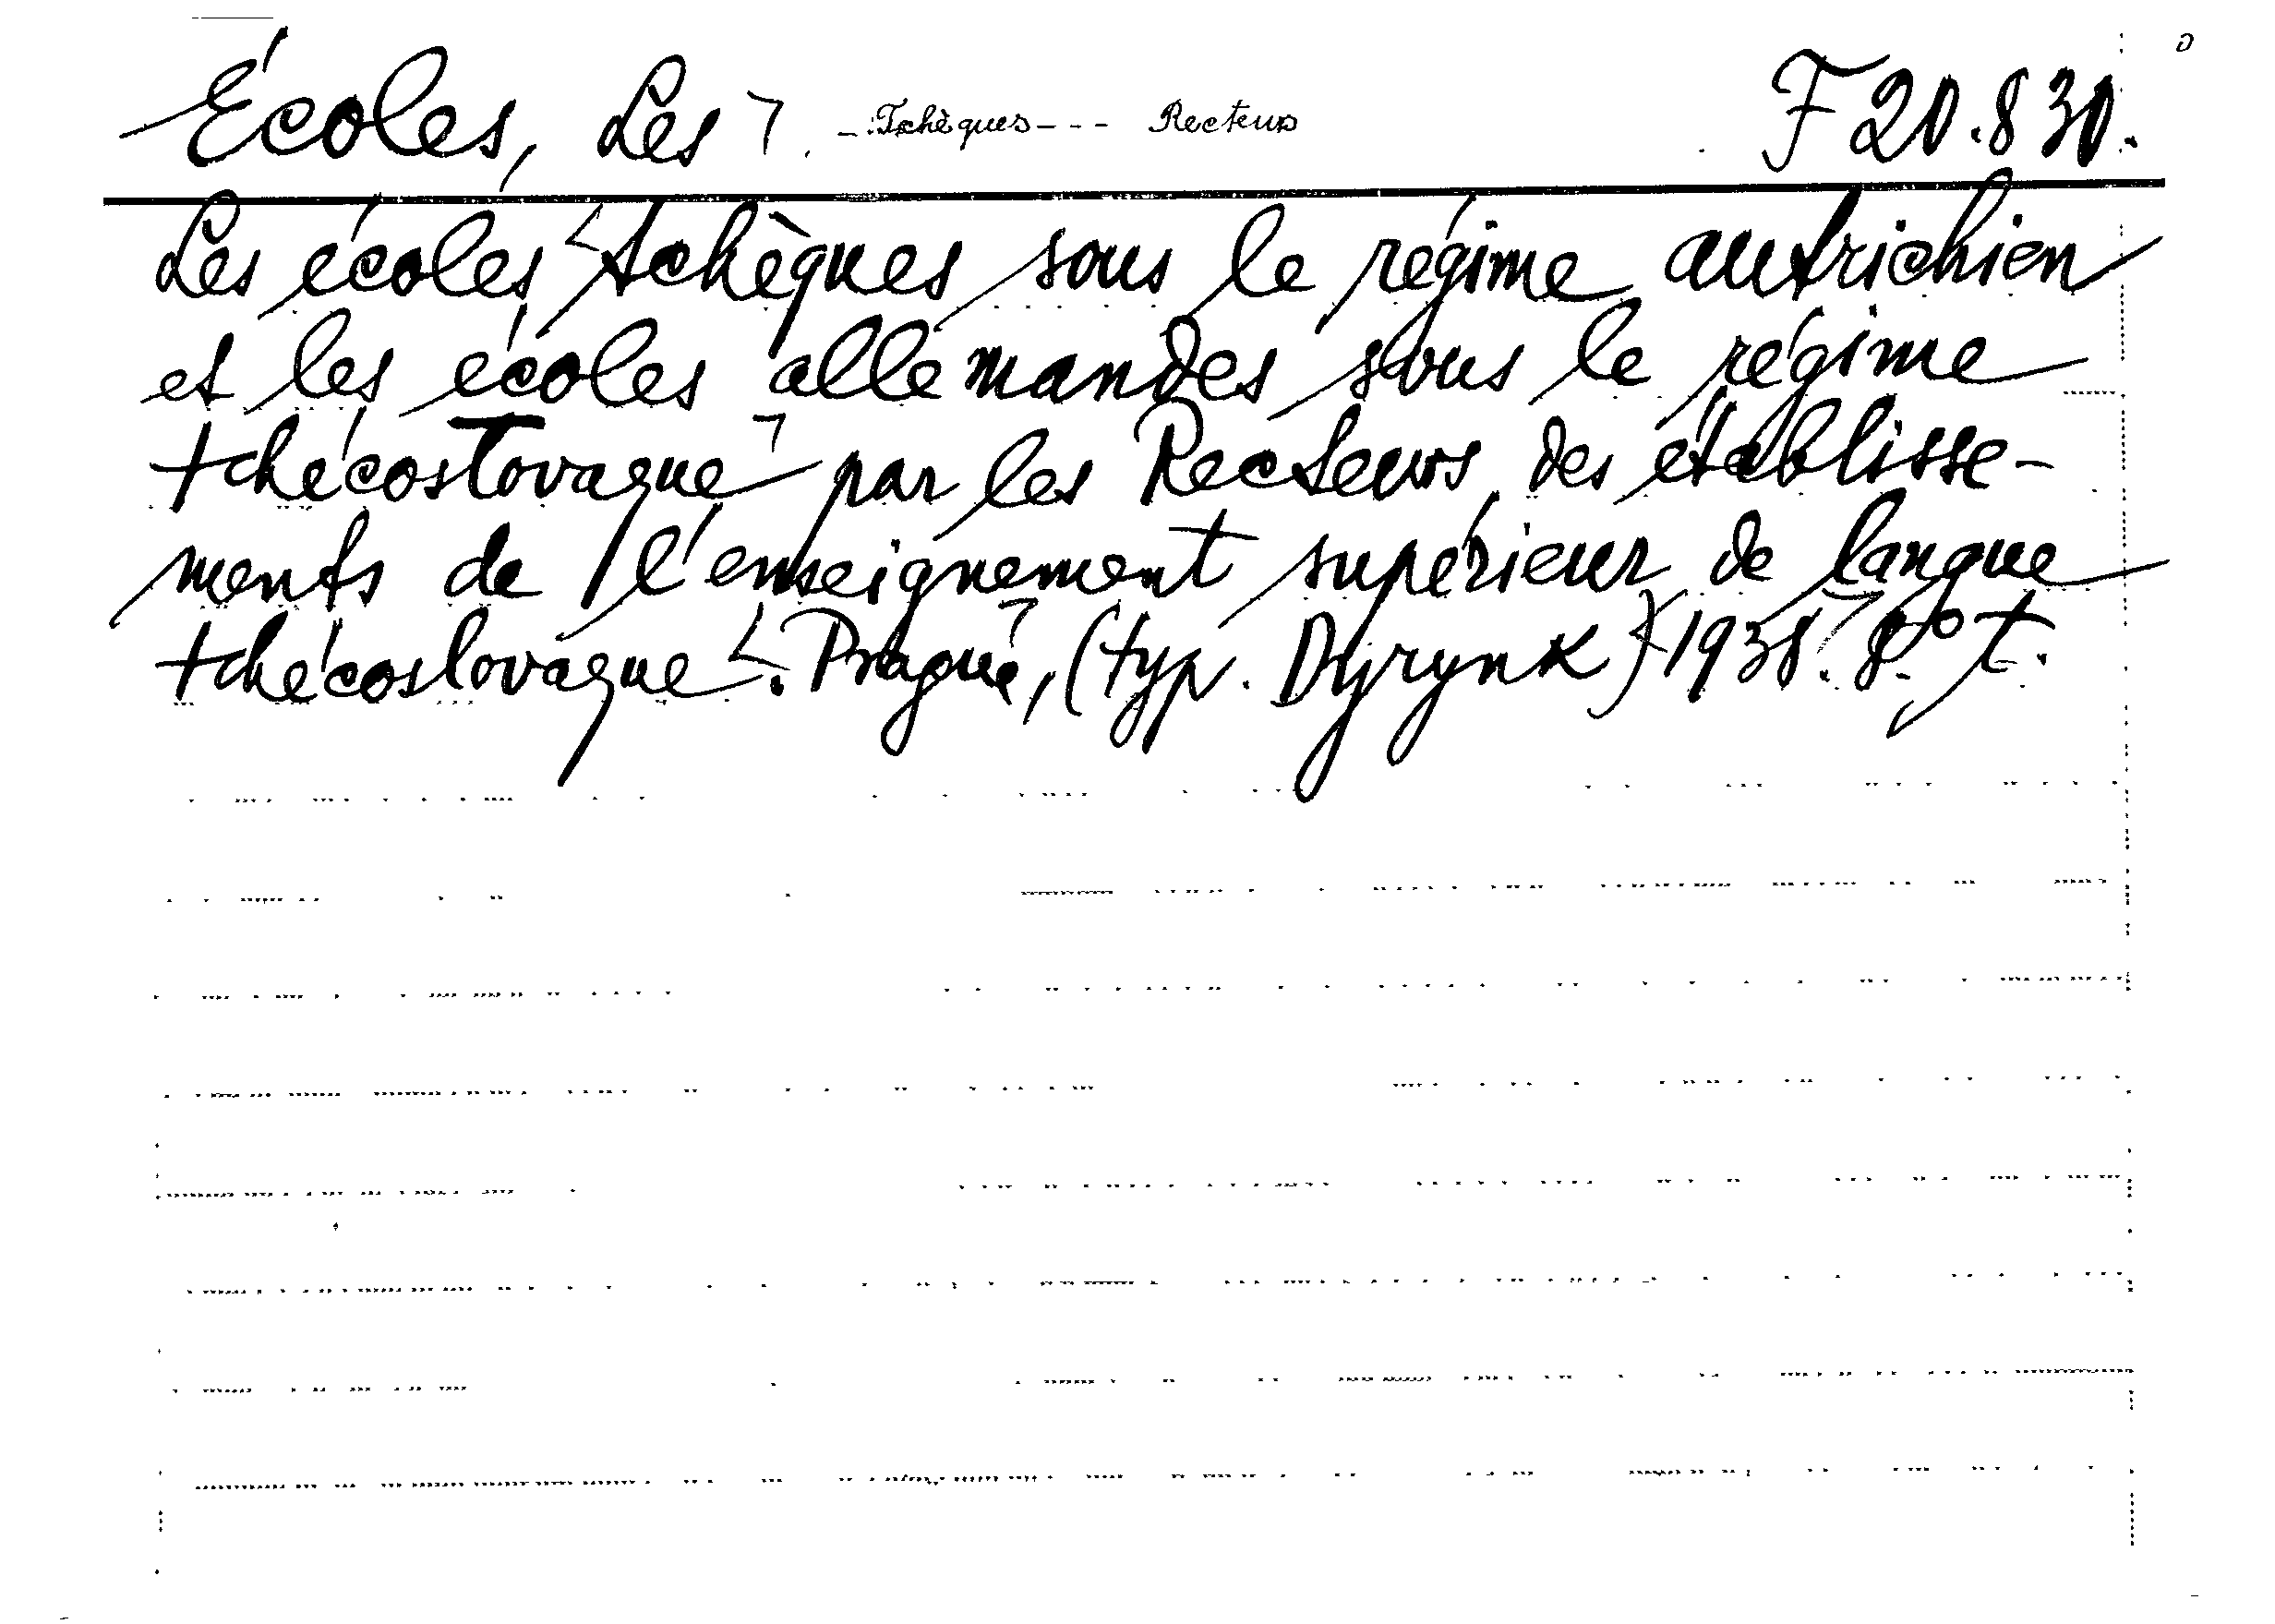 Écoles, Les – Tchèques - - - Recteurs F 20.830.
Les écoles tchèques sous le régime autrichien
et les écoles allemandes sous le régime
tchécoslovaque par les Recteurs des établisse-
ments de l'enseignement supérieur de langue
tchécoslovaque. Prague, (typ. Dyrynk) 1938. 8° t.